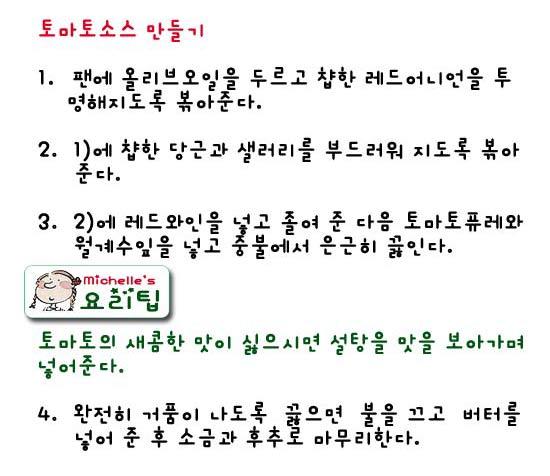 토마토소스 만들기
1. 팬에 올리브오일을 두르고 챱한 레드어니언을 투
명해지도록 볶아준다.
2. 1)에 챱한 당근과 샐러리를 부드러워 지도록 볶아
준다.
3. 2)에 레드와인을 넣고 졸여 준 다음 토마토퓨레와
월계수잎을 넣고 중불에서 은근히 끓인다.
Michelle's
요리팁
토마토의 새콤한 맛이 싫으시면 설탕을 맛을 보아가며
넣어준다.
4. 완전히 거품이 나도록 끓으면 불을 끄고 버터를
넣어 준 후 소금과 후추로 마무리한다.